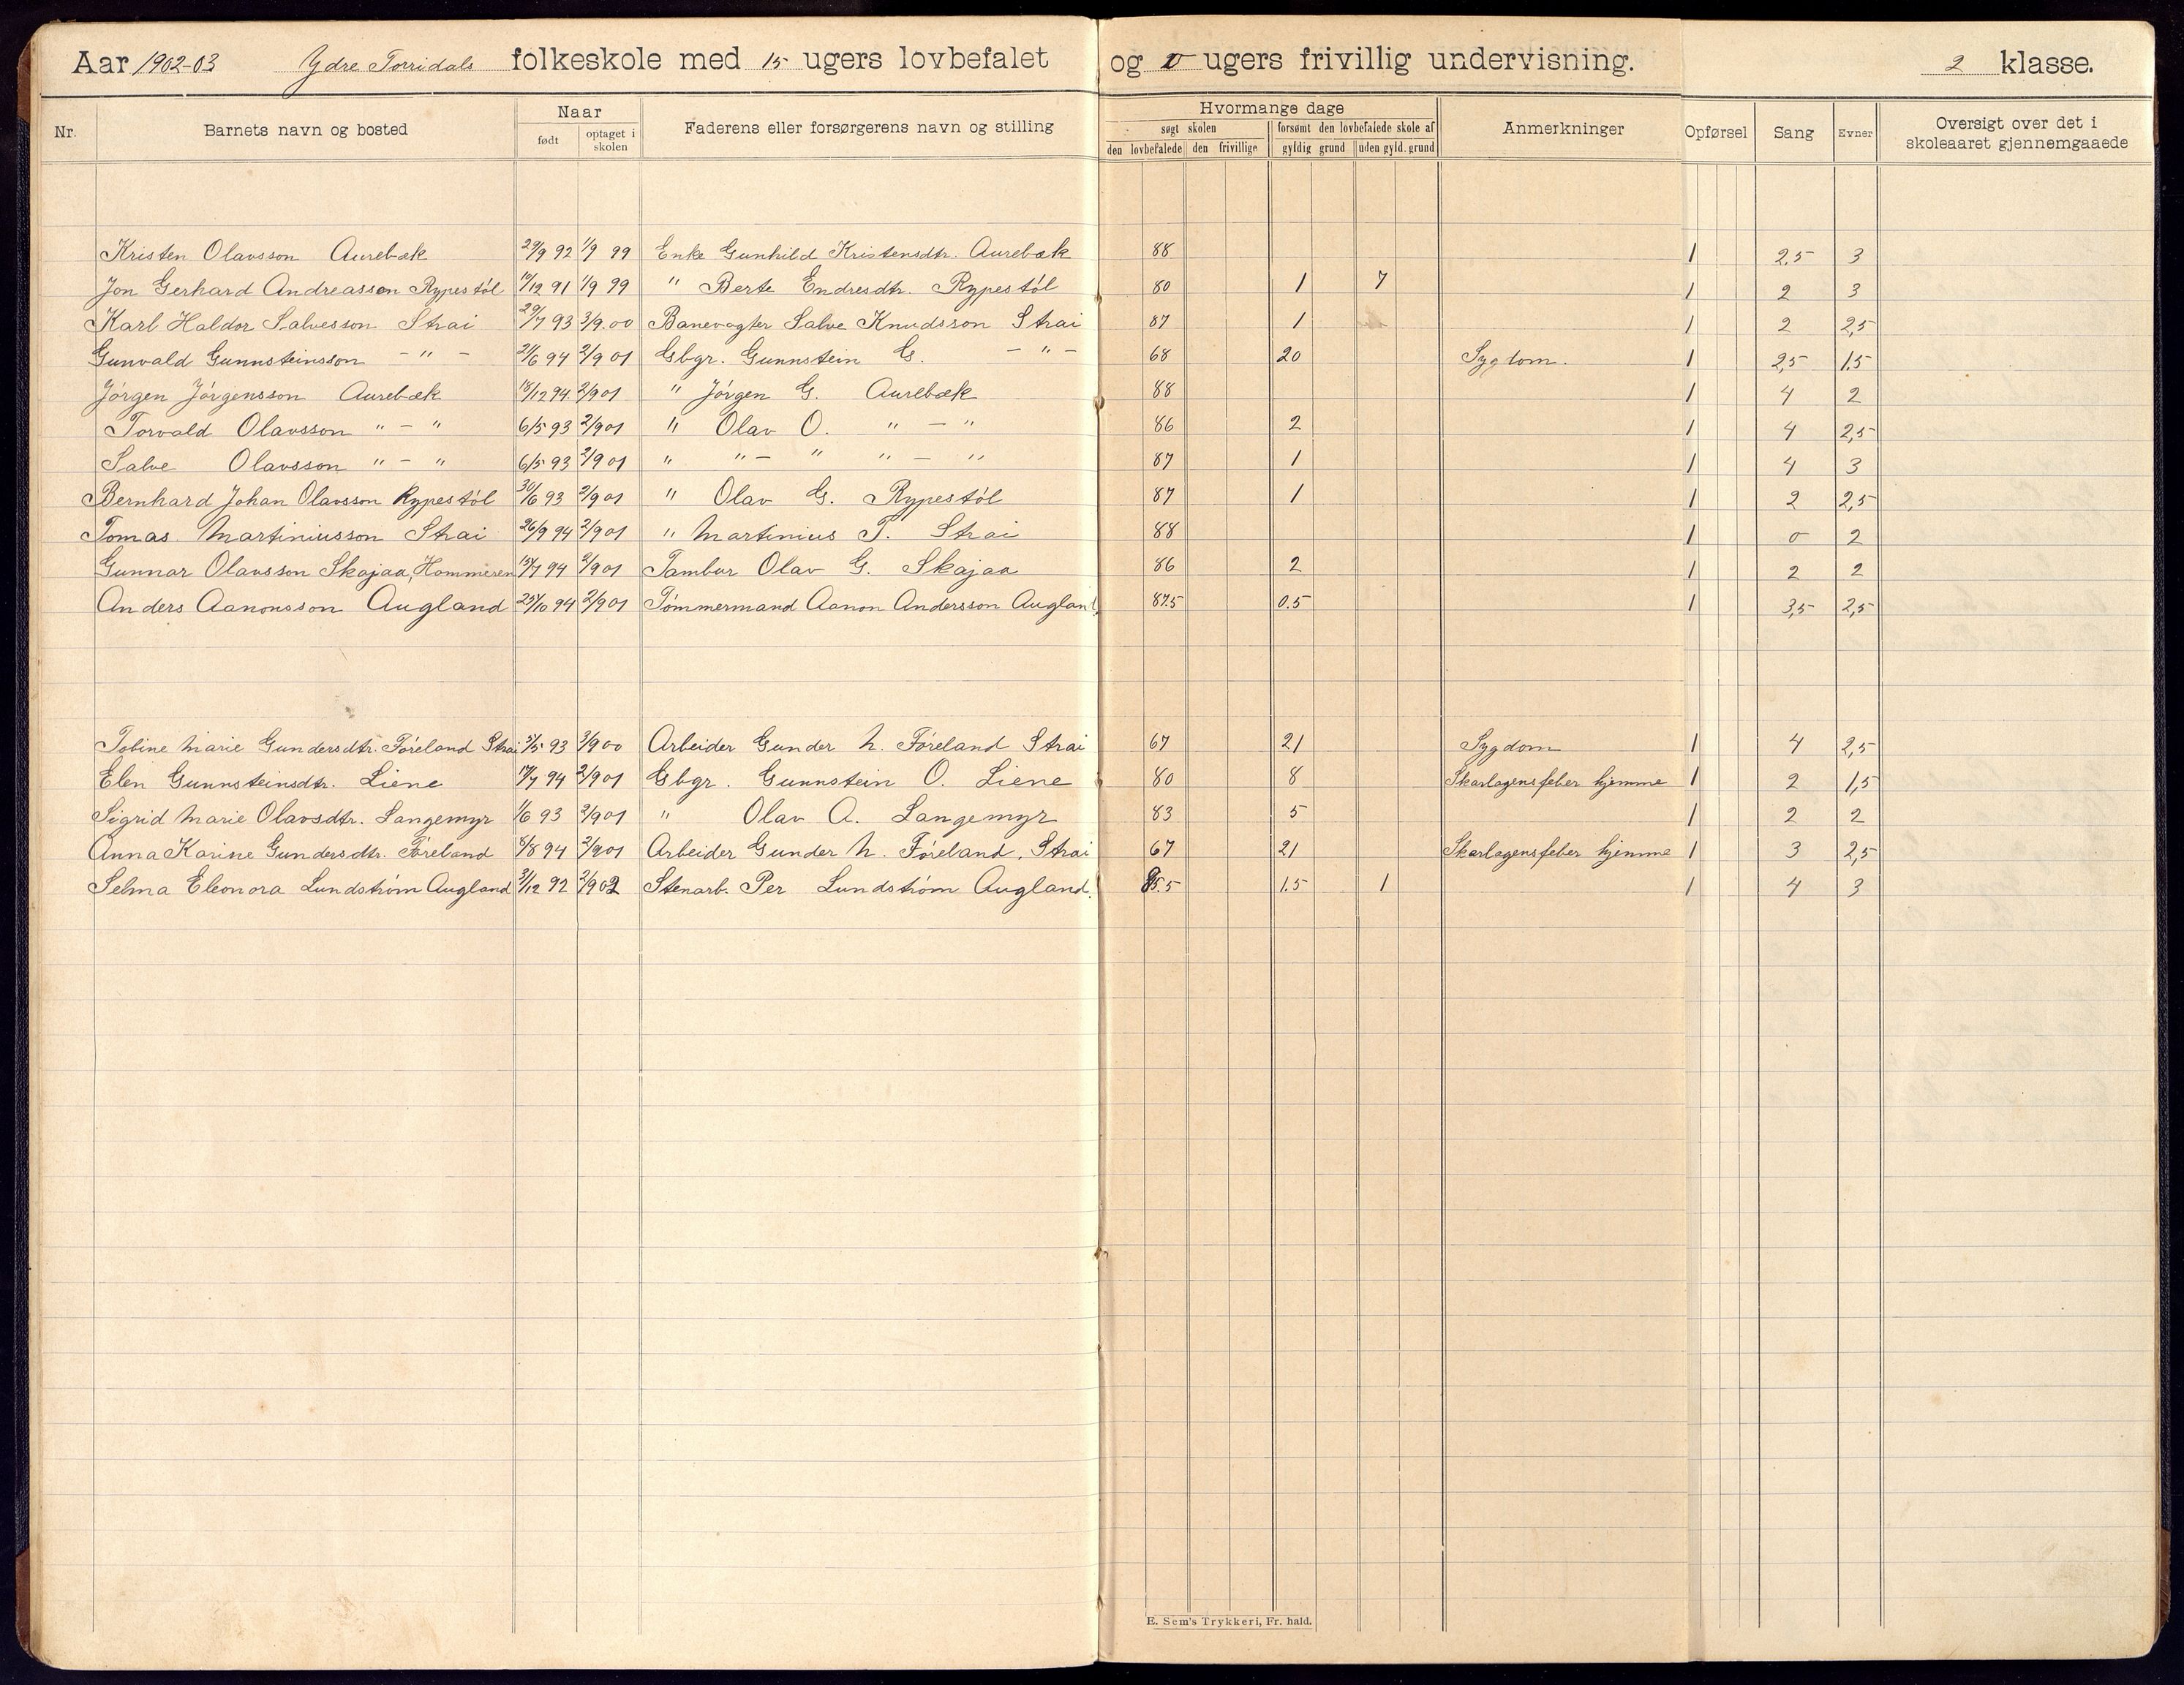 Aar 1902-03 Ydre Torridals folkeskole med 15 ugers lovbefalet og 0 ugers frivillig undervisning. 2 klasse.
Nr. Barnets navn og bosted Naar født optaget i skolen Faderens eller forsørgerens navn og stilling Hvormange dage søgt skolen den lovbefalede den frivillige forsømt den lovbefalede skole af gyldig grund uden gyld. grund Anmerkninger Opførsel Sang Evner Oversigt over det i skoleaaret gjennemgaaede
Kristen Olavsson Aurebæk 29/9 92 1/9 99 Enke Gunhild Kristensdtr. Aurebæk 88 1 2,5 3
Jon Gerhard Andreasson Rypestøl 10/12 91 1/9 99 " Berte Endresdtr. Rypestøl 80 1 7 1 2 3
Karl Haldor Salvesson Strai 29/7 93 3/9.00 Banevogter Salve Knudsson Strai 87 1 1 2 2,5
Gunvald Gunnsteinsson - " - 21/6 94 2/9 01 Gbgr. Gunnstein G. - " - 68 20 Sygdom. 1 2,5 1.5
Jørgen Jørgensson Aurebæk 18/12 94. 2/9 01 " Jørgen G. Aurebæk 88 1 4 2
Torvald Olavsson " - " 6/5 93 2/9 01 " Olav O. " - " 86 2 1 4 2,5
Salve Olavsson " - " 6/5 93 2/9 01 " " - " " - " 87 1 1 4 3
Bernhard Johan Olavsson Rypestøl 30/6 93 2/9 01 " Olav G. Rypestøl 87 1 1 2 2,5
Tomas Martiniusson Strai 26/9 94 2/9 01 " Martinius T. Strai 88 1 0 2
Gunnar Olavsson Skajaa, Hommeren 94 2/9 01 Tambur Olav G. Skajaa 86 2 1 2 2
Anders Aanonsson Augland 25/10 94 2/9 01 Tømmermand Aanon Andersson Augland 87.5 0.5 1 3,5 2,5
Tobine Marie Gundersdtr. Føreland Strai 5/5 93 3/9 00 Arbeider Gunder N. Føreland Strai 67 21 Sygdom 1 4 2,5
Elen Gunnsteinsdtr. Liene 17/7 94 2/9 01 Gbgr. Gunnstein O. Liene 80 8 Skarlagensfeber hjemme 1 2 1,5
Sigrid Marie Olavsdtr. Langemyr 1/6 93 2/9 01 " Olav A. Langemyr 83 5 1 2 2
Anna Karine Gundersdtr. Føreland 8/8 94 2/9 01 Arbeider Gunder N. Føreland, Strai 67 21 Skarlagensfeber hjemme 1 3 2,5
Selma Eleonora Lundstrøm Augland 31/12 92 2/9 02 Stenarb. Per Lundstrøm Augland. 85.5 1.5 1 1 4 3
E. Sem's Trykkeri, Fr. hald.